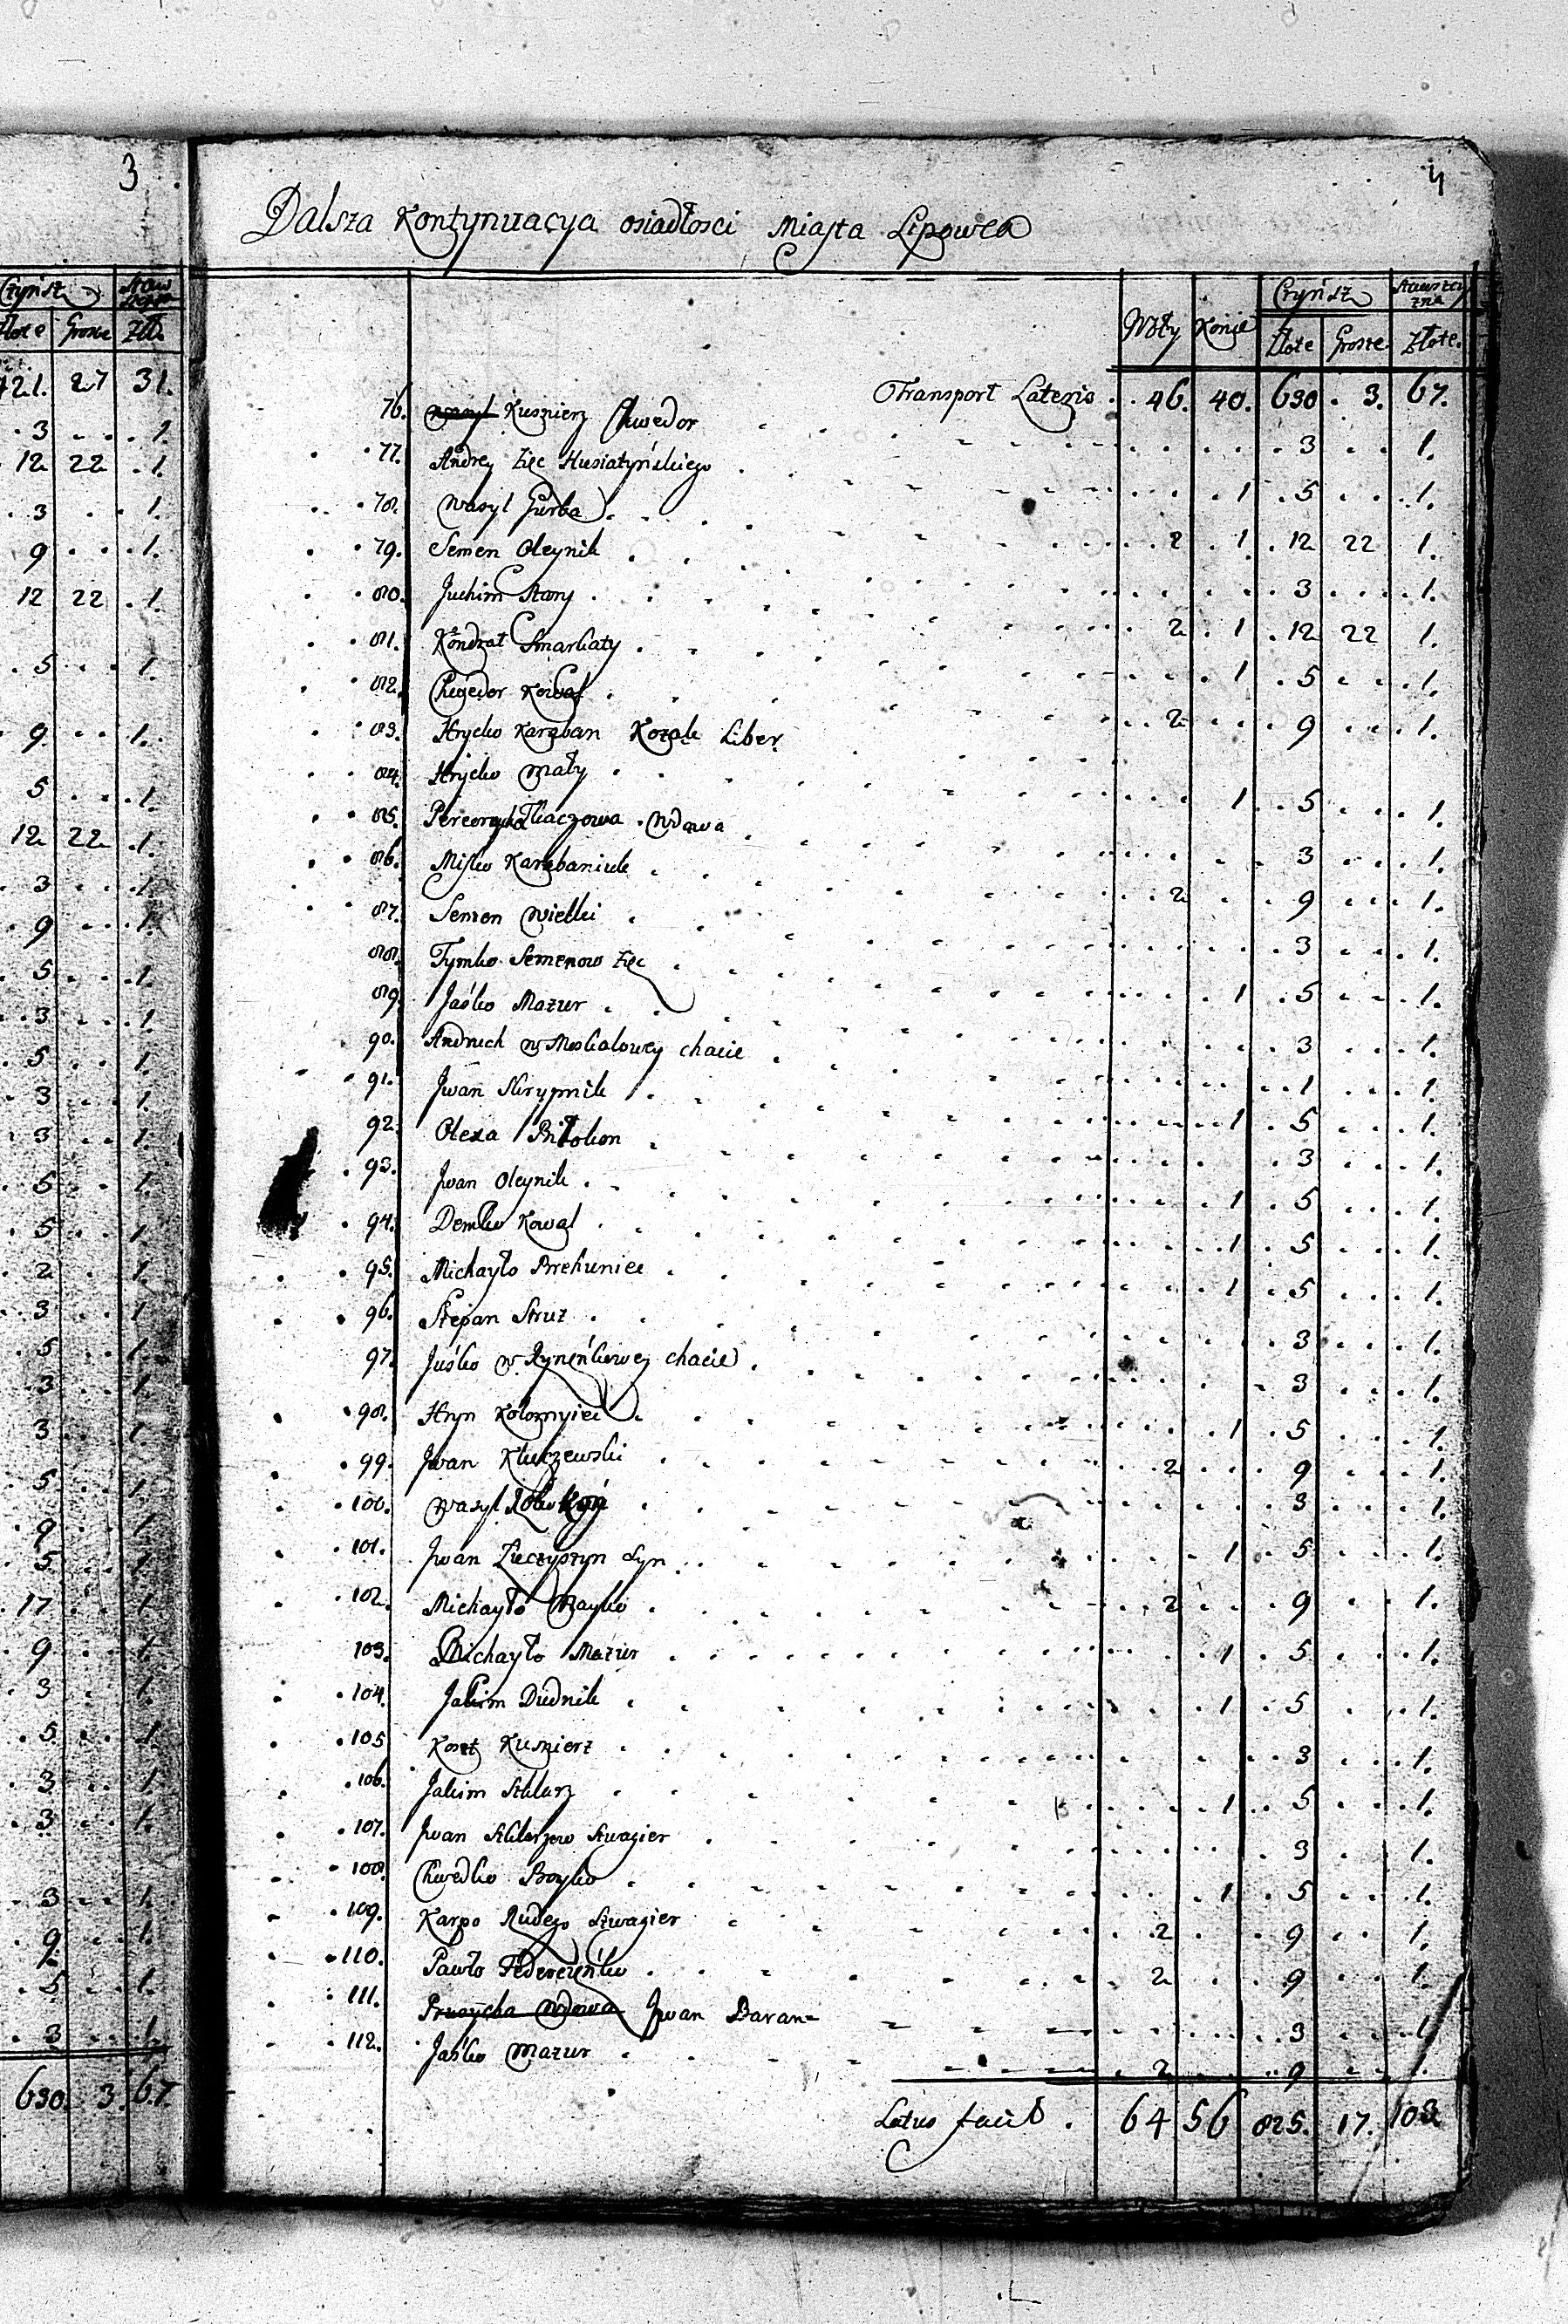 3
Czynsz
Złote Grosze Złt.
421. 27 31.
3 1.
12 22 1.
3 1.
9 1.
12 22 1.
5 1.
9 1.
5 1.
12 22 1.
3 1.
9 1.
5 1.
3 1.
5 1.
3 1.
3 1.
5 1.
5 1.
2 1.
3 1.
5 1.
3 1.
3 1.
5 1.
9 1.
5 1.
17 1.
9 1.
3 1.
5 1.
3 1.
3 1.
3 1.
9 1.
5 1.
3 1.
630. 3. 67.
4
Dalsza Kontynuacya osiadłosci Miasta Lipowca
Woły Konie Czynsz Stawszczyzna
Złote Grosze Złote.
Transport Lateris 46. 40. 630 3. 67.
76. Wasyl Kusznierz Chwedor 3 1.
77. Andrey Zięc Husiatyńskiego 1 5 1.
78. Wasyl Gurba 2 1 12 22 1.
79. Semen Oleynik 3 1.
80. Juchim Stary 2 1 12 22 1.
81. Kondrat Smarkaty 1 5 1.
82. Chwedor Kowal 2 9 1.
83. Hrycko Karaban Kozak Liber
84. Hrycko Mały 1 5 1.
85. Tkaczowa Wdowa 3 1.
86. Misko Karabaniuk 2 9 1.
87. Semen Wielki 3 1.
88. Tymko Semenow Zięc 1 5 1.
89. Jaśko Mazur 3 1.
90. Andruch w Moskalowey chacie 1 1.
91. Jwan Skrypnik 1 5 1.
92. Olexa 3 1.
93. Jwan Oleynik 1 5 1.
94. Demko Kowal 1 5 1.
95. Michayło Brehuniec 1 5 1.
96. Stepan Struz 3 1.
97. Juśko w chacie 3 1.
98. Hryn Kołomyiec 1 5 1.
99. Jwan Kluczewski 2 9 1.
100. Wasyl 3 1.
101. Jwan Syn 1 5 1.
102. Michayło 2 9 1.
103. Michayło Mazur 1 5 1.
104. Jakim Dudnik 1 5 1.
105 Kost Kusnierz 3 1.
106. Jakim Sklarz 1 5 1.
107. Jwan Sklarzow Szwagier 3 1.
108. Chwedko Boyko 1 5 1.
109. Karpo Rudego Szwagier 2 9 1.
110. Pawło Federeńko 2 9 1.
111. Wdowa Jwan Baran 3 1.
112. Jaśko Mazur 2 9 1.
Latus facit 64 56 825. 17. 103